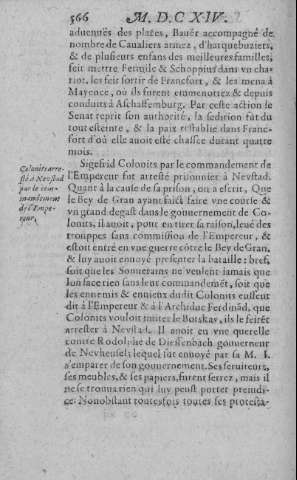 566 M. D. C XIV.
aduenuës des places, Bauër accompagné de
nombre de Caualiers armez, d'harquebuziers,
& de plusieurs enfans des meilleures familles,
feit mettre Fettmile & Schoppius dans vn cha-
riot, les feit sortir de Francfort, & les mena à
Mayence, où ils furent emmenottez & depuis
conduits à Aschaffemburg. Par ceste action le
Senat reprit son authorité, la sedition fut du
tout esteinte, & la paix restablie dans Franc-
fort d'où elle auoit esté chassée durant quatre
mois.
Colonits arre-
sté à Nevstad
par le com-
mandement
de l'Empe-
reur.
Sigefrid Colonits par le commandement de
l'Empereur fut arresté prisonnier à Nevstad.
Quant à la cause de sa prison, on a escrit, Que
le Bey de Gran ayant faict faire vne course &
vn grand degast dans le gouuernement de Co-
lonits, il auoit, pour en tirer sa raison, leué des
trouppes sans commission de l'Empereur, &
estoit entré en vue guerre côtre le Bey de Gran,
& luy auoit enuoyé presenter la bataille: bref,
soit que les Souuerains ne veulent iamais que
l'on face rien sans leur commandemét, soit que
les ennemis & enuieux dudit Colonits eussent
dit à l'Empereur & à l'Archiduc Ferdinãd, que
Colonits vouloit imiter le Botskay, ils le feirét
arrester à Nevstad. Il auoit eu vne querelle
contre Rodolphe de Dieffenbach gouuerneur
de Nevheusel; lequel fut enuoyé par sa M. I.
s'emparer de son gouuernement. Ses seruiteurs,
ses meubles, & ses papiers, furent serrez, mais il
ne se trouua rien qui luy peust porter preiudi-
ce: Nonobstant toutesfois toutes ses protesta-